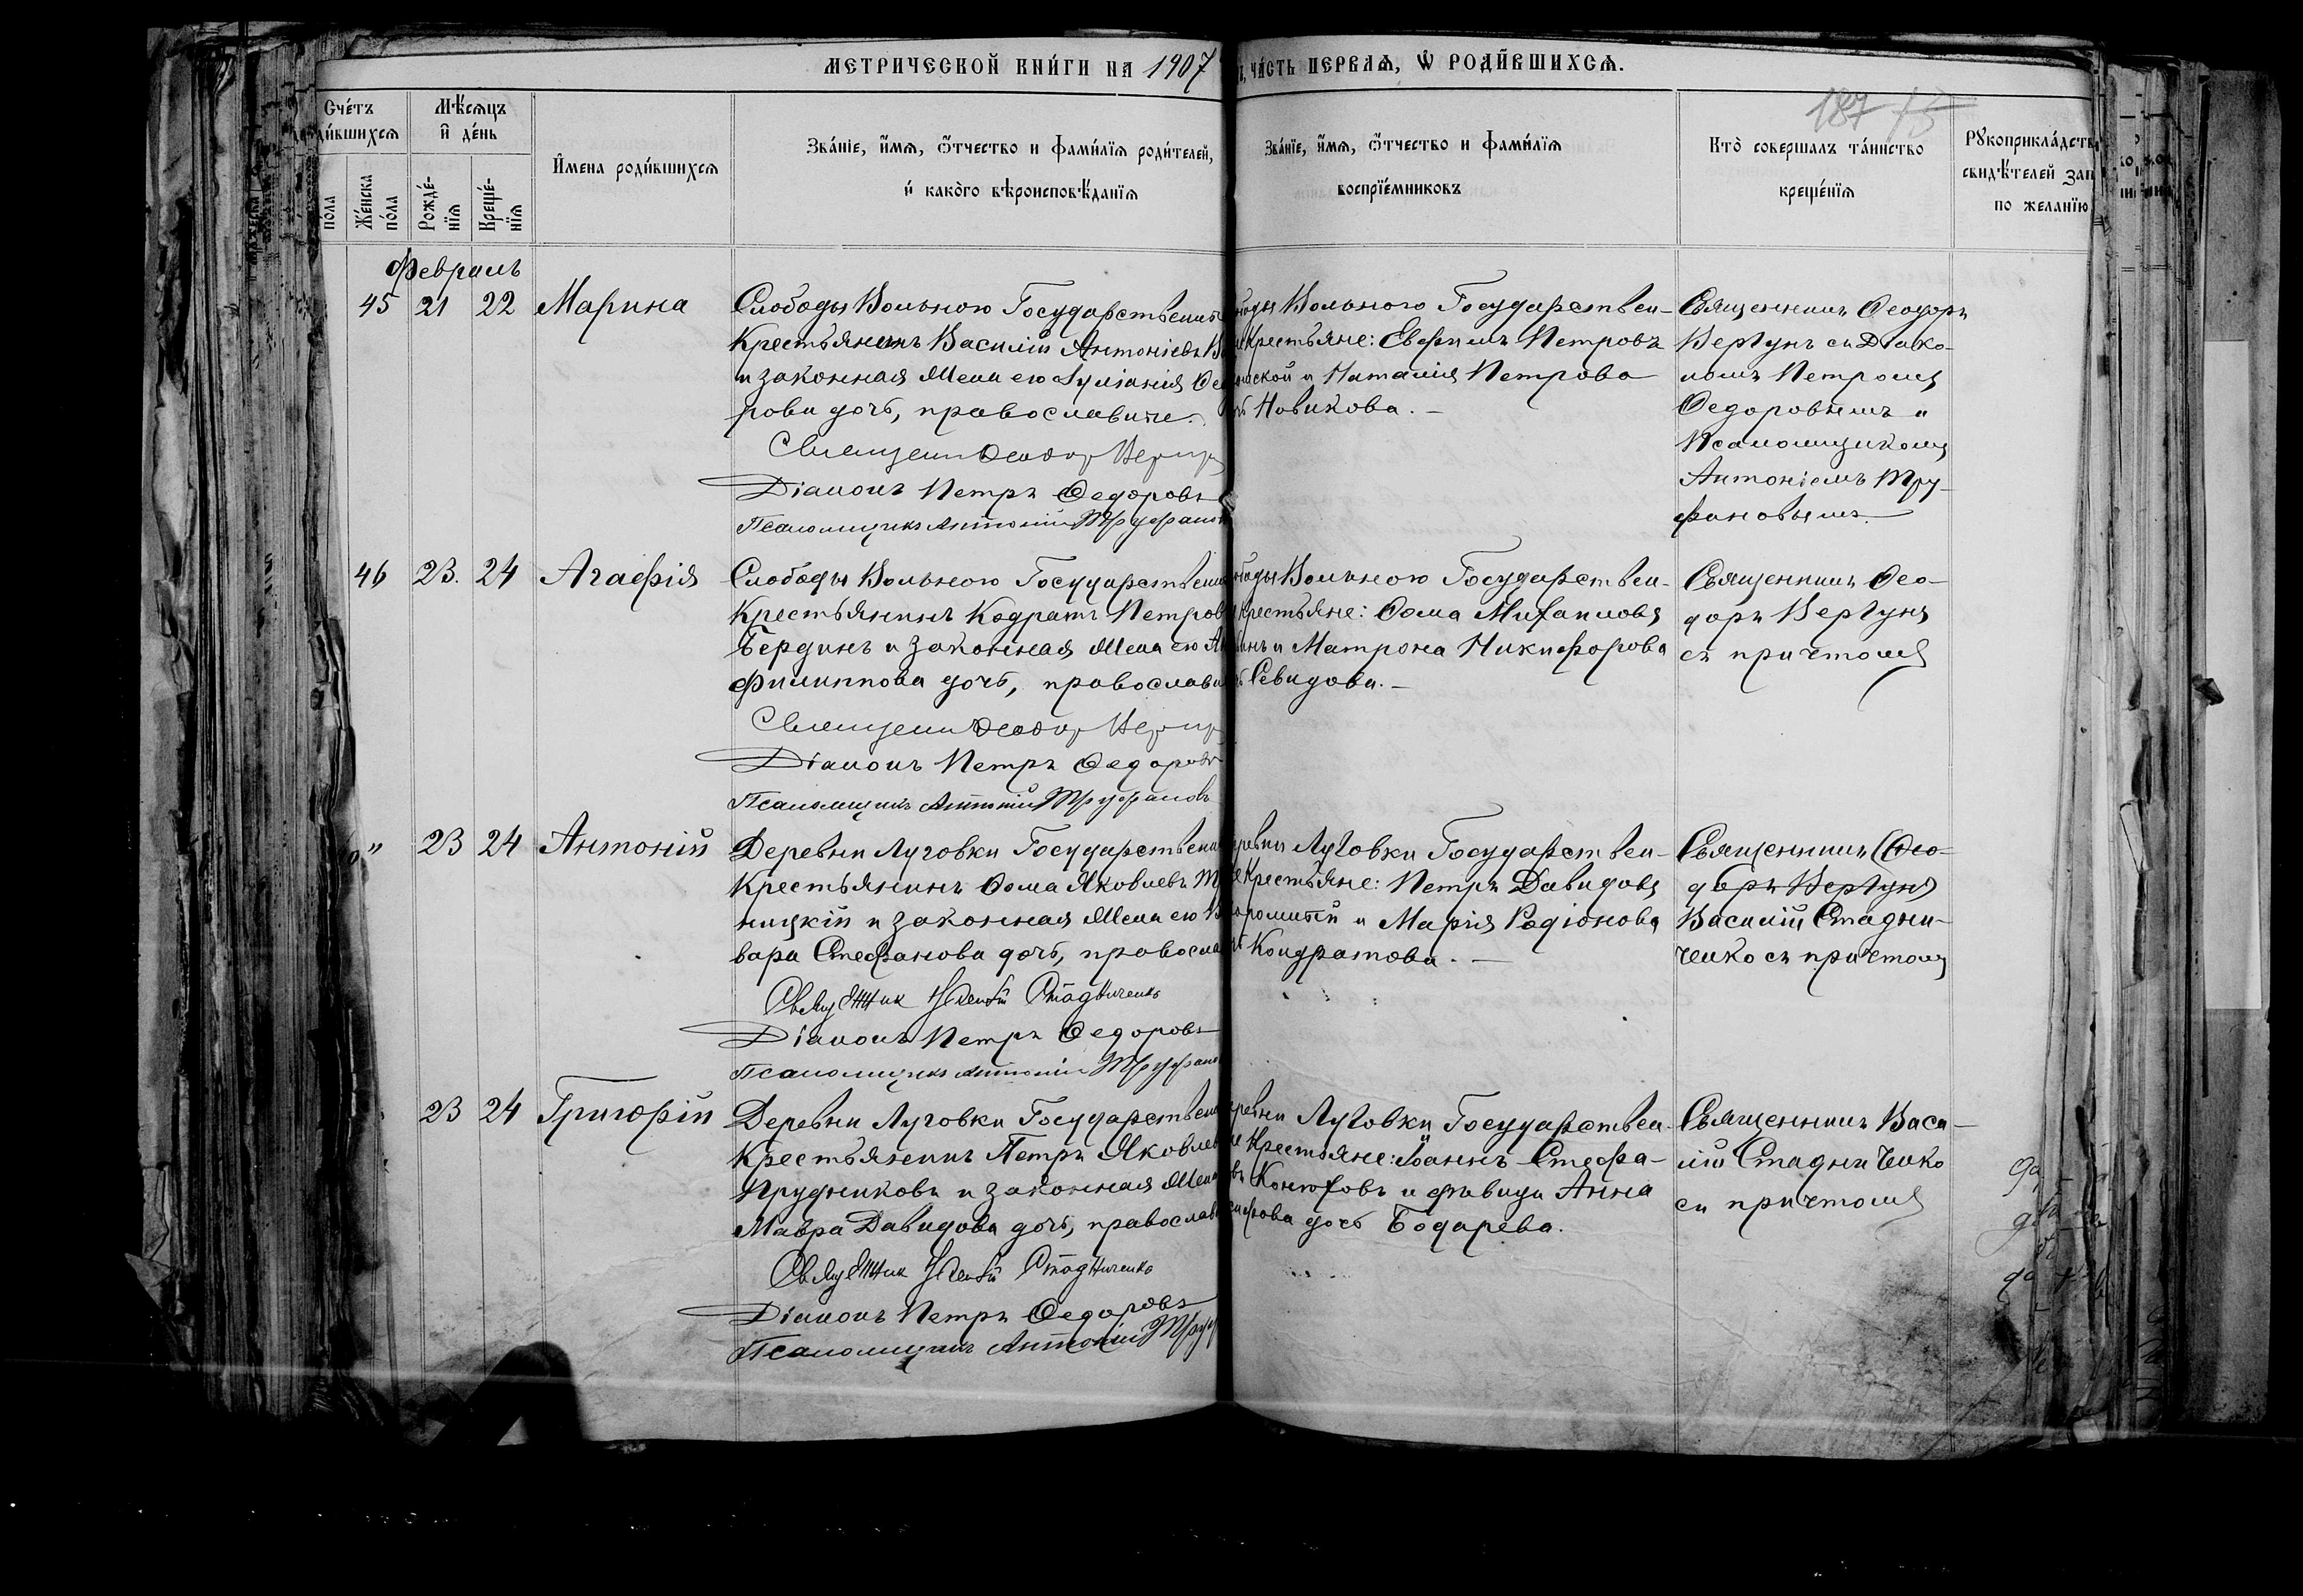 МЕТРИЧЕСКОЙ КНИ́ГИ НА 1907
ЧА́СТЬ ПЕРВАѦ, Ѿ РОДИ́ВШИХСѦ.
187
Сче́тъ
ди́вшихсѧ
Мѣ́сѧцъ
и҆ де́нь
И҆мена роди́вшихсѧ
Зва́нїе, и҆́мѧ, ѻ҆́тчество и фами́лїѧ роди́телей,
и҆ како́гѡ вѣроисповѣ́данїѧ
Зва́нїе, и҆́мѧ, ѻ҆́тчество и фами́лїѧ
воспрїе́мниковъ
Кто̀ совершалъ та́инство
креще́нїѧ
Рꙋкоприкла́дств
свидѣ́телей зап
по желанїю
по́ла
Же́нска
по́ла
Рожде́-
нїѧ
Креще́-
нїѧ
Февраль
45 21 22 Марина
Слободы Вольного Государственн
Крестьянинъ Василій Антоніевъ
и законная Жена его Іуліанія Ѳео
рова дочь, православные.
Священн Ѳеодор Вергун
Діаконъ Петръ Ѳедоровъ
Псаломщикъ Антоній Труфанов
боды Вольного Государствен-
Крестьяне: Евфимъ Петровъ
ской и Наталія Петрова
чь Новикова. –
Священникъ Ѳеодоръ
Вергунъ съ Діако-
номъ Петромъ
Ѳедоровымъ и
Псаломщикомъ
Антоніемъ Тру-
фановымъ.
46 23. 24 Агафія
Слободы Вольного Государственн
Крестьянинъ Кодратъ Петров
Бердинъ и законная Жена его
Филиппова дочь, православн
Священн Ѳеодор Вергун
Діаконъ Петръ Ѳедоровъ
Псаломщикъ Антоній Труфановъ
боды Вольного Государствен-
Крестьяне: Ѳома Михаиловъ
инъ и Матрона Никифорова
чь Севидова. –
Священникъ Ѳео-
доръ Вергунъ
съ причтомъ
" 23 24 Антоній
Деревни Луговки Государственн
Крестьянинъ Ѳома Яковлевъ
ницкій и законная Жена его В
вара Стефанова дочь, правосла
Священник Василій Стадниченко
Діаконъ Петръ Ѳедоровъ
Псаломщикъ Антоній Труфано
ревни Луговки Государствен-
Крестьяне: Петръ Давидовъ
и Марія Родіонова
чь Кондратова. –
Священникъ Ѳео-
доръ Вергунъ
Василій Стадни-
ченко съ причтомъ
23 24 Григорій
Деревни Луговки Государственн
Крестьянинъ Петръ Яковлев
Прудниковъ и законная Жена
Мавра Давидова дочь, православ
Священник Василій Стадниченко
Діаконъ Петръ Ѳедоровъ
Псаломщикъ Антоній Труф
ревни Луговки Государствен-
Крестьяне: Іоаннъ Стефа-
въ Конюховъ и дѣвица Анна
дочь Бодарева.
Священникъ Васи-
лій Стадниченко
съ причтомъ